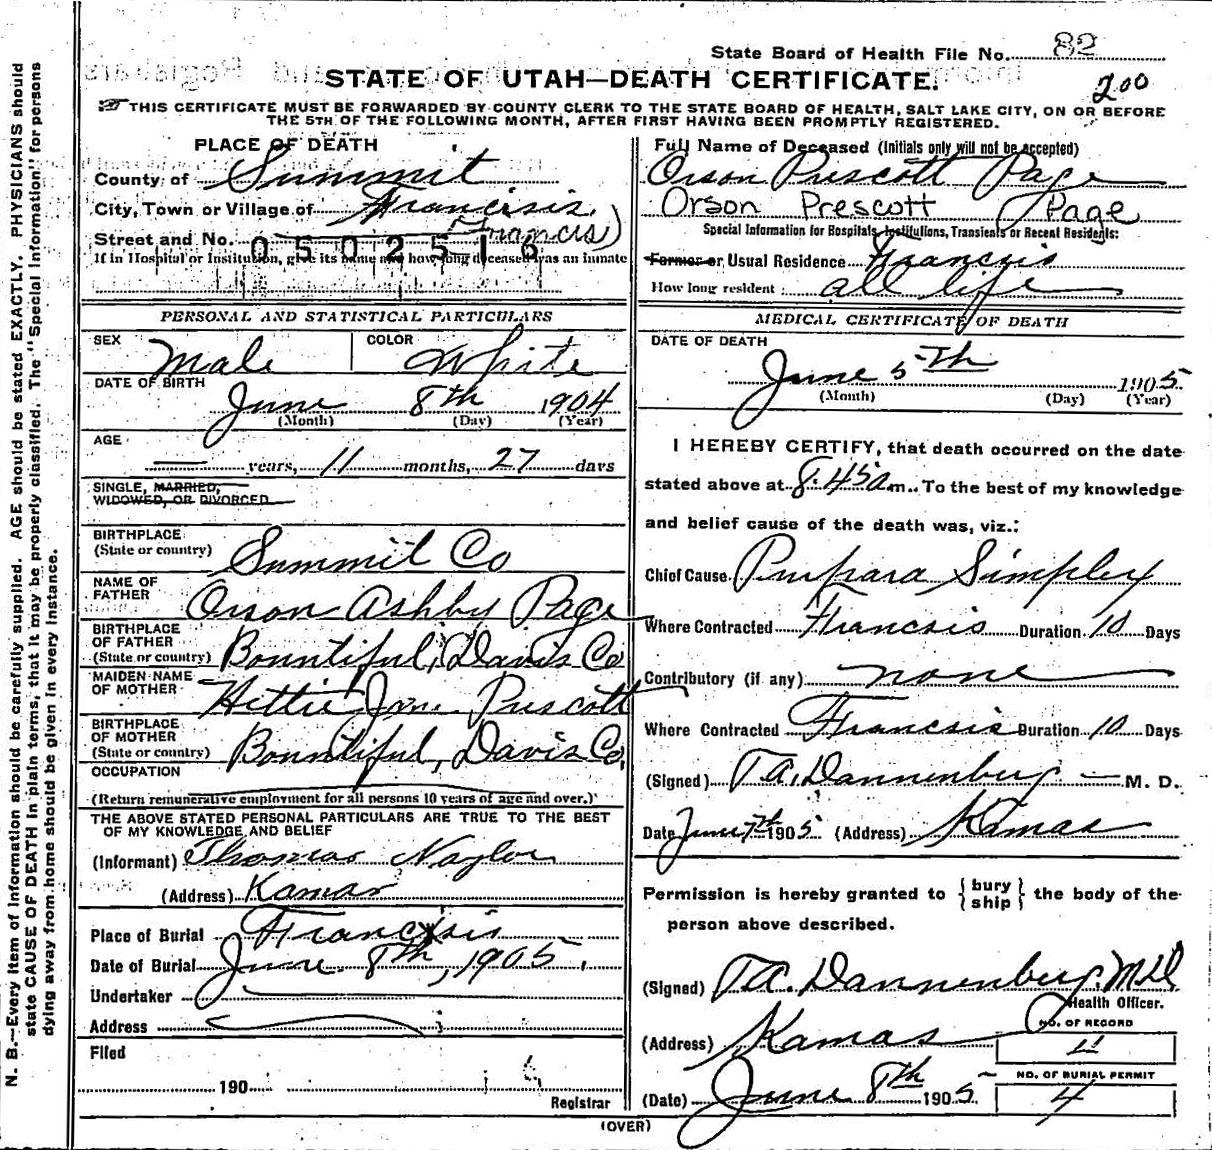 State Board of Health File No. 82
STATE OF UTAH—DEATH CERTIFICATE.
200
THIS CERTIFICATE MUST BE FORWARDED BY COUNTY CLERK TO THE STATE BOARD OF HEALTH, SALT LAKE CITY, ON OR BEFORE
THE 5TH OF THE FOLLOWING MONTH, AFTER FIRST HAVING BEEN PROMPTLY REGISTERED.
PLACE OF DEATH
County of Summit
City, Town or Village of Francisis
(Francis)
Street and No. 0502516
If in Hospital or Institution, give its name and how long deceased was an inmate
PERSONAL AND STATISTICAL PARTICULARS
SEX Male COLOR White
DATE OF BIRTH
June 8th 1904
(Month) (Day) (Year)
AGE
— years, 11 months, 27 days
SINGLE, MARRIED,
WIDOWED, OR DIVORCED
BIRTHPLACE
(State or country) Summit Co
NAME OF
FATHER Orson Ashby Page
BIRTHPLACE
OF FATHER
(State or country) Bountiful, Davis Co
MAIDEN NAME
OF MOTHER Hettie Jane Prescott
BIRTHPLACE
OF MOTHER
(State or country) Bountiful, Davis Co.
OCCUPATION
(Return remunerative employment for all persons 10 years of age and over.)
THE ABOVE STATED PERSONAL PARTICULARS ARE TRUE TO THE BEST
OF MY KNOWLEDGE AND BELIEF
(Informant) Thomas Naylor
(Address) Kamas
Place of Burial Francsis
Date of Burial June 8th, 1905.
Undertaker
Address
Filed
190
Registrar
Full Name of Deceased (Initials only will not be accepted)
Orson Prescott Page
Orson Prescott Page
Special Information for Hospitals, Institutions, Transients or Recent Residents:
Former or Usual Residence Francsis
How long resident all life
MEDICAL CERTIFICATE OF DEATH
DATE OF DEATH
June 5th 1905.
(Month) (Day) (Year)
I HEREBY CERTIFY, that death occurred on the date
stated above at 8.45 a m. To the best of my knowledge
and belief cause of the death was, viz.:
Chief Cause Purpara Simpley
Where Contracted Francsis Duration 10 Days
Contributory (if any) none
Where Contracted Francsis Duration 10 Days
(Signed) T.A. Dannenberg — M. D.
Date June 7th 1905 (Address) Kamas
Permission is hereby granted to { bury
ship } the body of the
person above described.
(Signed) T.A. Dannenberg, M.D
Health Officer.
(Address) Kamas
NO. OF RECORD
11
(Date) June 8th 1905
NO. OF BURIAL PERMIT
4
(OVER)
N. B.—Every item of information should be carefully supplied. AGE should be stated EXACTLY. PHYSICIANS should
state CAUSE OF DEATH in plain terms, that it may be properly classified. The "Special Information" for persons
dying away from home should be given in every instance.